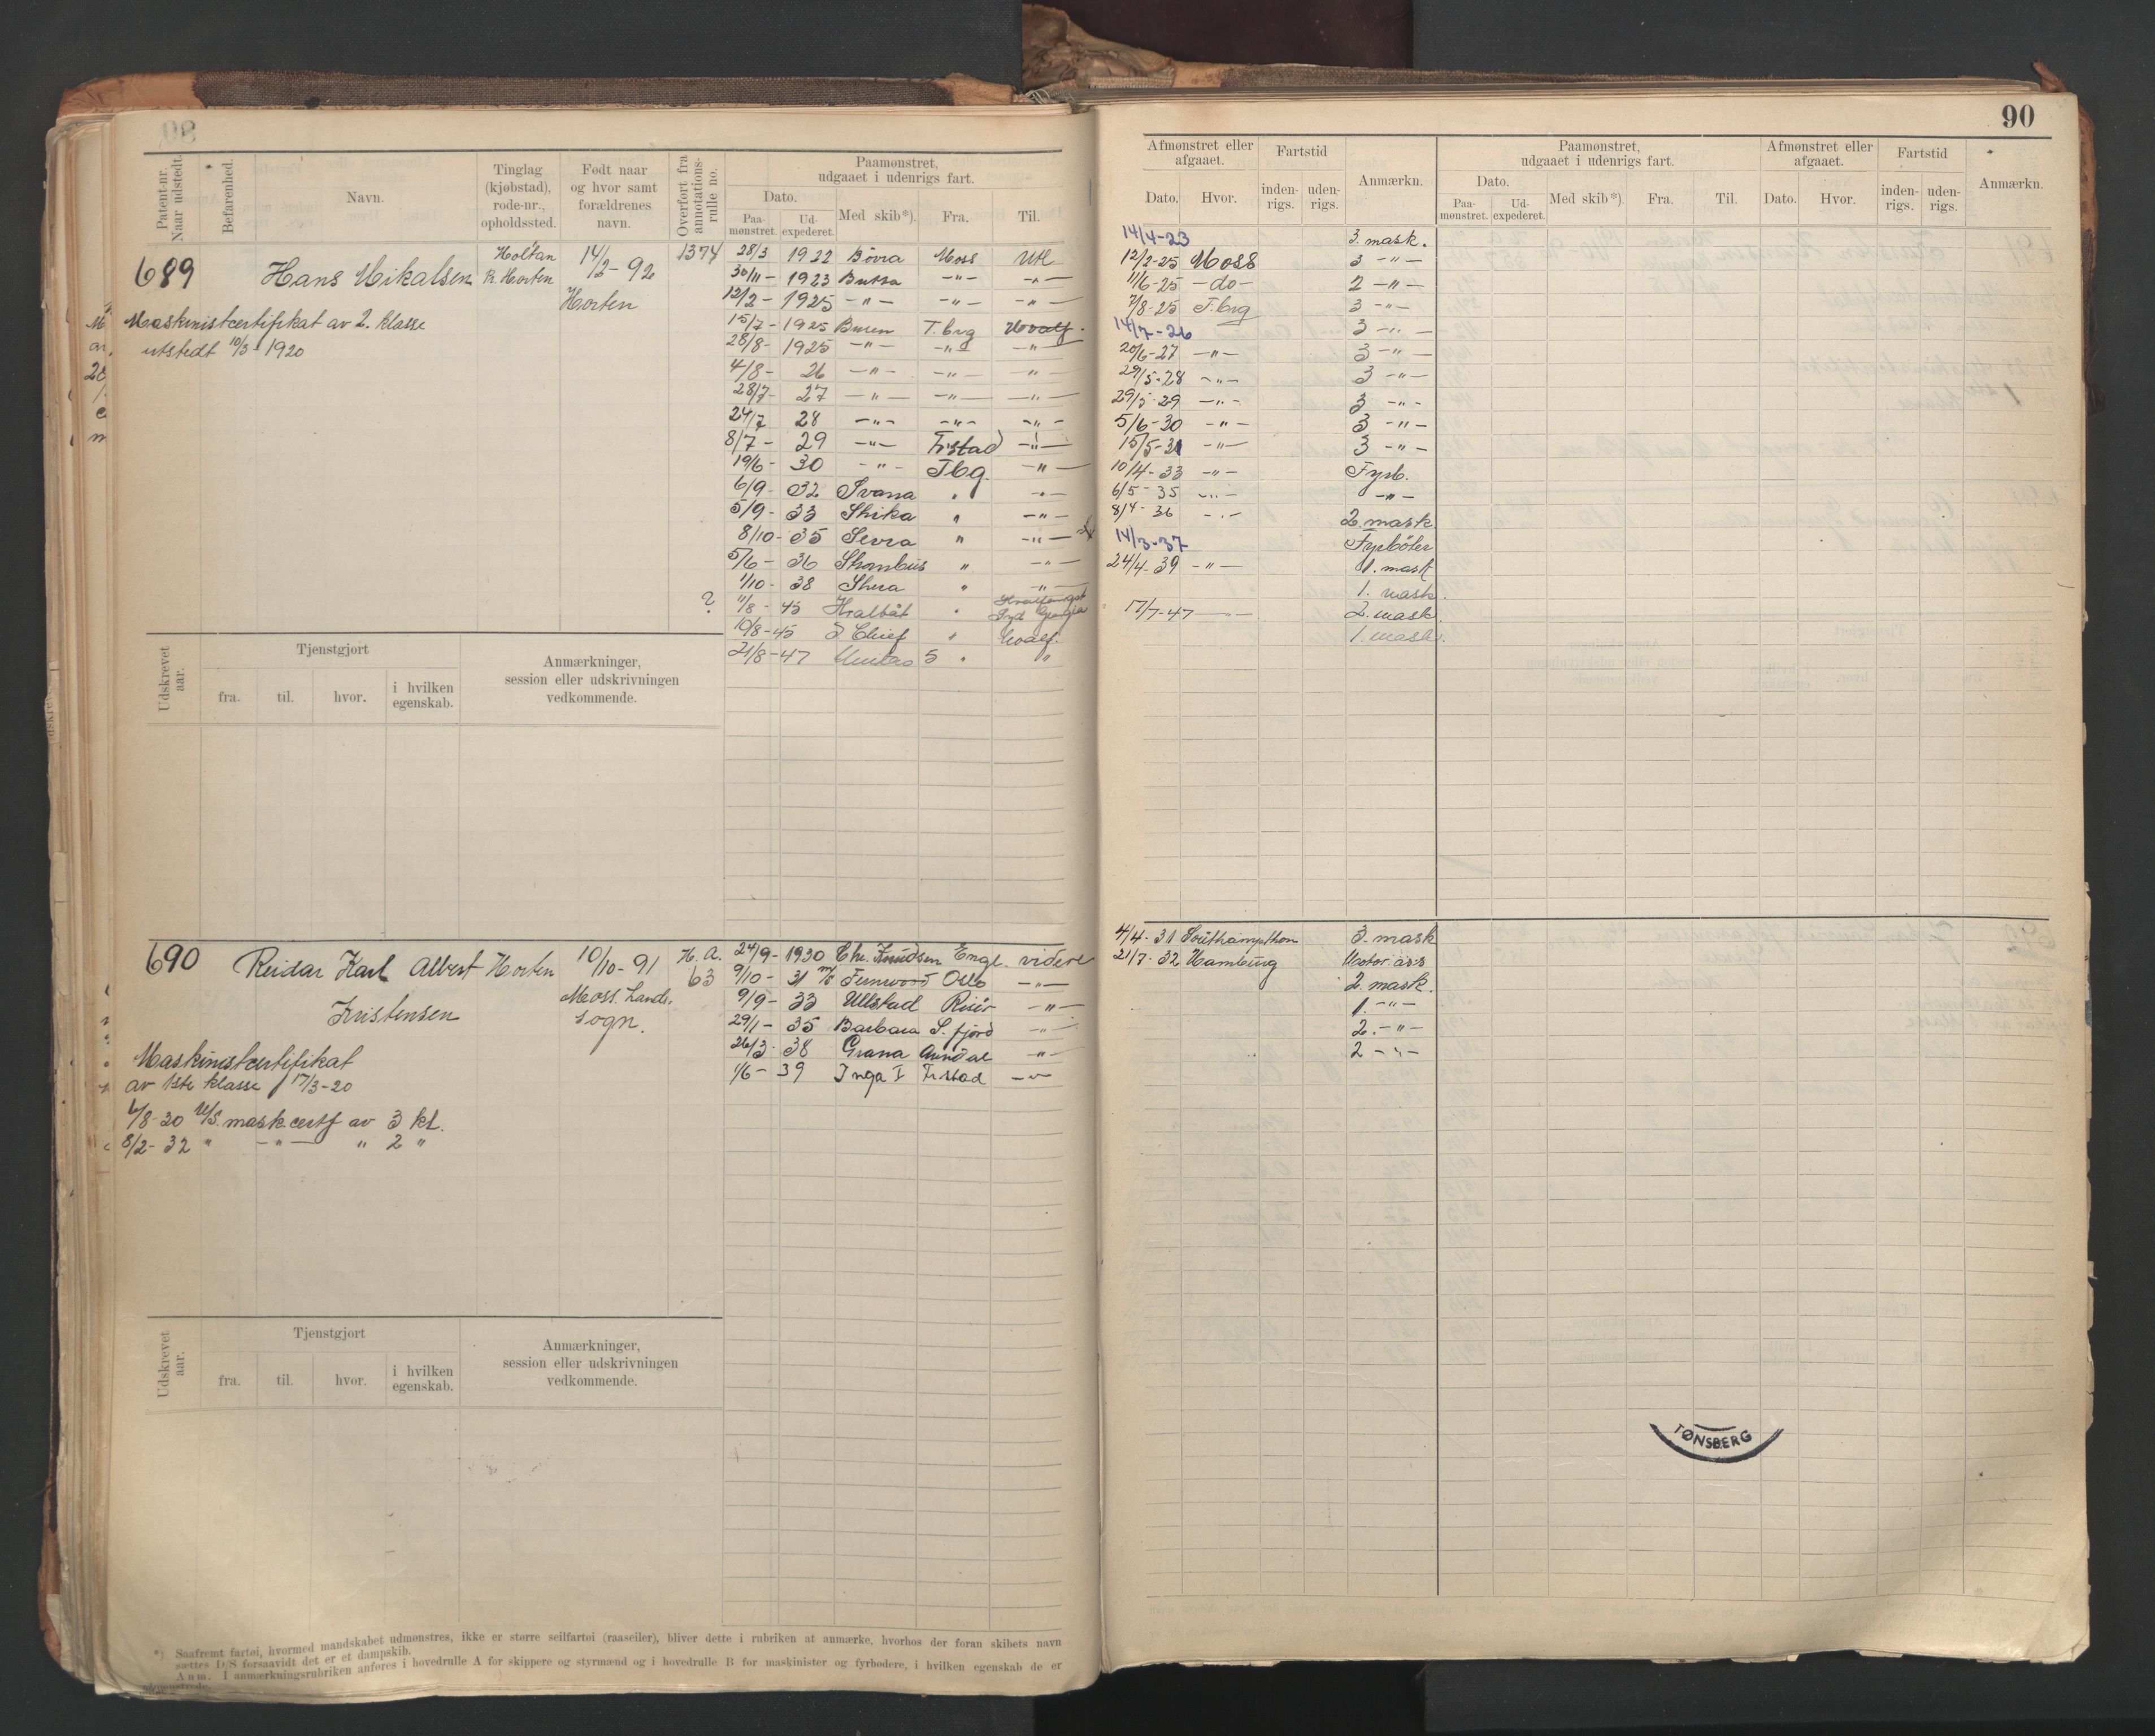 90
Patent-nr. Naar udstedt.
Befarenhed.
Navn.
Tinglag (kjøbstad), rode-nr., opholdssted.
Født naar og hvor samt forældrenes navn.
Overført fra annotations-rulle no.
Paamønstret, udgaaet i udenrigs fart.
Dato.
Paa-mønstret.
Ud-expederet.
Med skib*).
Fra.
Til.
Afmønstret eller afgaaet.
Dato.
Hvor.
Fartstid
inden-rigs.
uden-rigs.
Anmærkn.
Paamønstret, udgaaet i udenrigs fart.
Dato.
Paa-mønstret.
Ud-expederet.
Med skib*).
Fra.
Til.
Afmønstret eller afgaaet.
Dato.
Hvor.
Fartstid
inden-rigs.
uden-rigs.
Anmærkn.
689 Hans Mikalsen Holtan Horten 14/2-92 Horten 1374
Maskinistcertifikat av 2. klasse
utstedt 10/3-1920
28/3 1922 Bövra Moss Utl
30/11-1923 -"- -"-
12/2-1925 -"- -"- -"-
15/7-1925 T.brg
28/8-1925 -"- -"- -"-
4/8- 26 -"- -"- -"-
28/7- 27 -"- -"- -"-
24/7 28 -"- -"- -"-
8/7- 29 -"- Frstad -"-
19/6- 30 -"- Tbg. -"-
6/9- 32 Svana " -"-
5/9- 33 Shika " -"-
8/10- 35 Sevra " -"-
5/6- 36 Shombus " -"-
1/10- 38 Shera " -"-
? 11/8- 45 Hvalbåt " Hvalfangst Syd Georgia
10/8-45 S Chief " Hvalf.
21/8-47 Unitas 5 " "
14/4-23 3. mask.
12/2-25 Moss 3 -"-
11/6-25 -do- 2 -"-
7/8-25 T.brg 3 -"-
14/7-26 3 -"-
20/6-27 -"- 3 -"-
29/5-28 -"- 3 -"-
29/5-29 -"- 3 -"-
5/6-30 -"- 3 -"-
15/5-31 -"- 3 -"-
10/4-33 -"- Fyrb.
6/5-35 -"- -"-
8/4-36 -"- 2. mask
14/3-37 Fyrböter
24/4-39 -"- 1. mask
1. mask.
17/7-47 2. mask.
1. mask.
Udskrevet aar.
Tjenstgjort
fra.
til.
hvor.
i hvilken egenskab.
Anmærkninger, session eller udskrivningen vedkommende.
690 Reidar Karl Albert Kristensen Horten 10/10-91 Moss. Lands. sogn. H. A. 63
Maskinistcertifikat
av 1ste klasse 17/3-20
6/8-30 mask.certf av 3 kl.
8/2-32 " -"- " 2 "
24/9-1930 Chr. Knudsen Engl. videre
9/10- 31 m/s Fernwood Oslo -"-
9/9- 33 Ullstad Risör -"-
29/1- 35 Barbara S. fjord -"-
26/3- 38 Grana Arendal -"-
1/6- 39 Inga I Frstad -"-
4/4-31 Southampthon 3. mask
21/7-32 Hamburg Motor ass
2. mask.
1. -"-
2. -"-
2 -"-
Udskrevet aar.
Tjenstgjort
fra.
til.
hvor.
i hvilken egenskab.
Anmærkninger, session eller udskrivningen vedkommende.
TØNSBERG
*) Saafremt fartøi, hvormed mandskabet udmønstres, ikke er større seilfartøi (raaseiler), bliver dette i rubriken at anmærke, hvorhos der foran skibets navn
sættes D/S forsaavidt det er et dampskib.
Anm. I anmærkningsrubriken anføres i hovedrulle A for skippere og styrmænd og i hovedrulle B for maskinister og fyrbødere, i hvilken egenskab de er